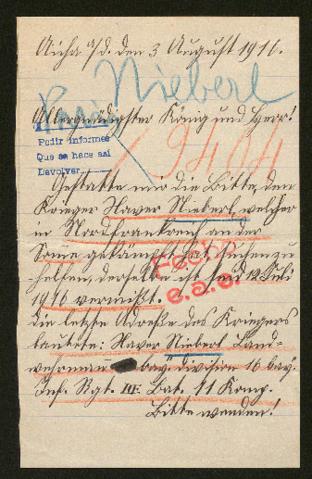 Aicha a/d. den 3 August 1916.
Nieberl
Paris
Allergnädigster König und Herr!
Pedir informes
Que se hace así
Devolver
9404
Gestatte mir die Bitte, den
Krieger Xaver Nieberl, welcher
in Nordfrankreich an der
Some gekämpft hat, suchen zu
helfen, derselbe ist seid 12 Juli
1916 vermißt.
Fecho
e.s.e.
Die letzte Adreße des Kriegers
lautete: Xaver Nieberl Land-
wehrmann bay. division 16 bay.
Inf. Rgt. III. Bat. 11 Komp.
Bitte wenden!